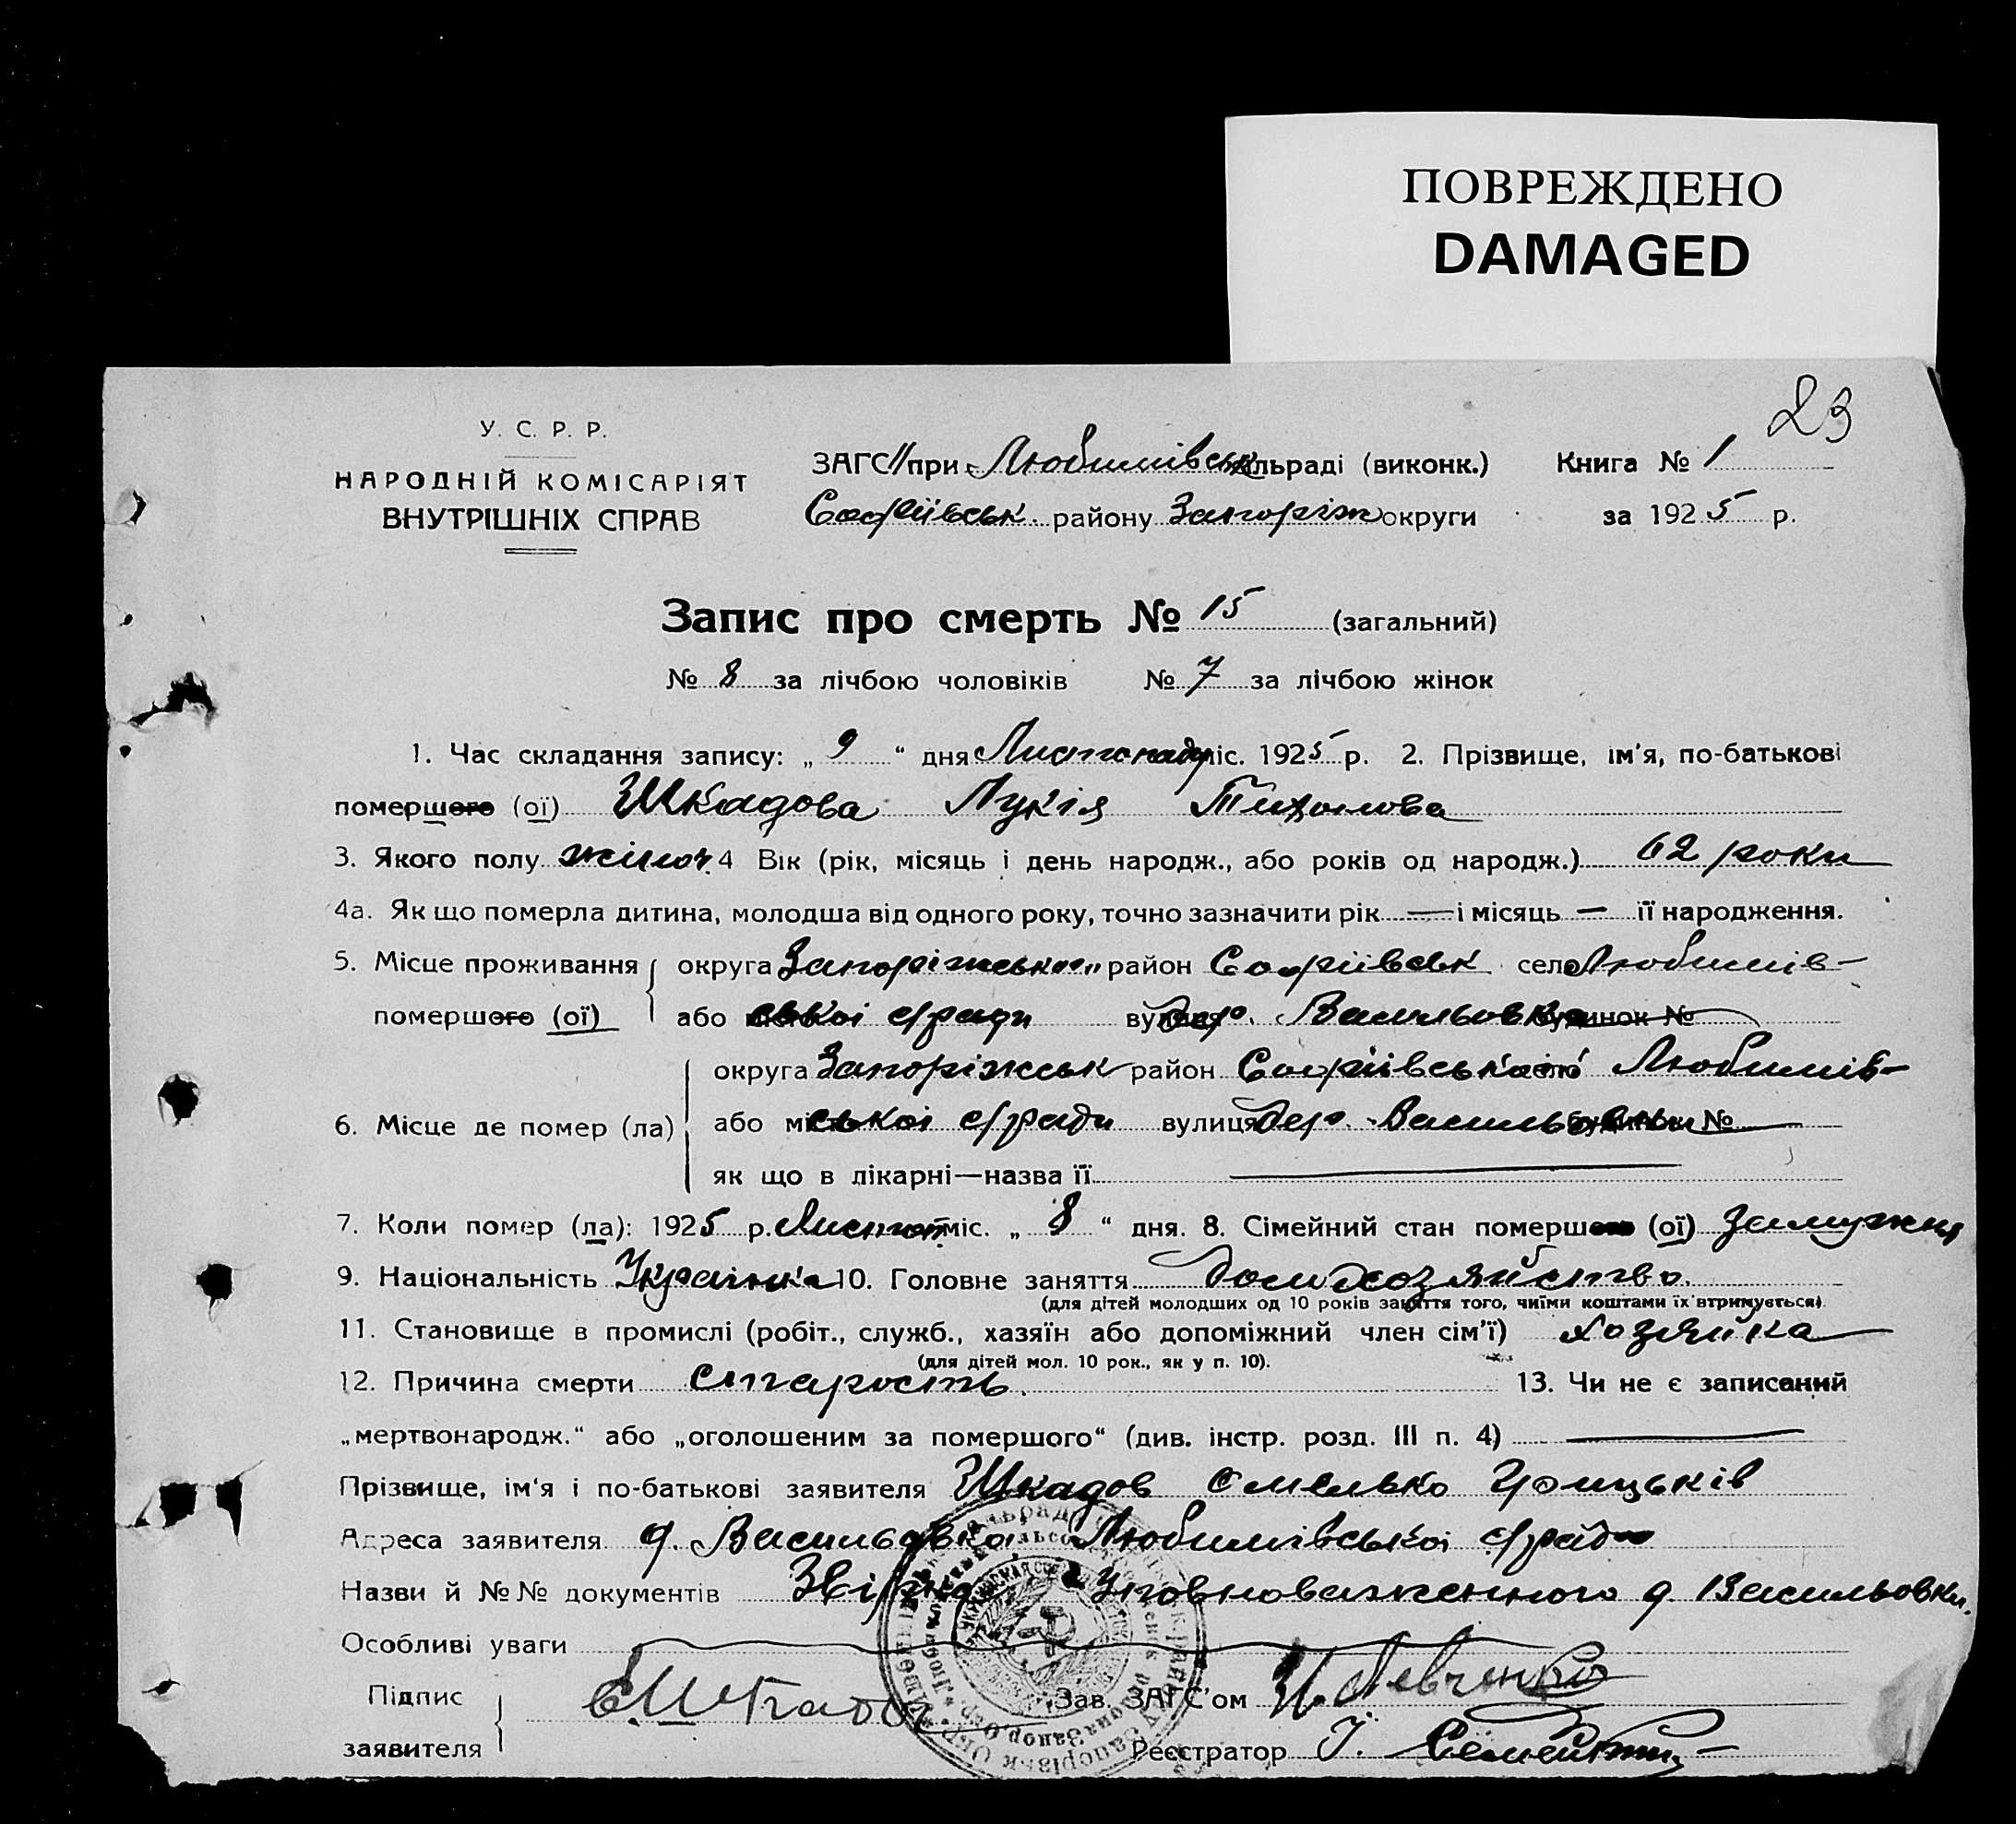 ПОВРЕЖДЕНО
DAMAGED
23
У. С. Р. Р.
НАРОДНІЙ КОМІСАРІЯТ
ВНУТРІШНІХ СПРАВ
ЗАГС при Любимівськ сільраді (виконк.) Книга № 1
Софіївськ. району Запоріж округи за 1925 р.
Запис про смерть № 15 (загальний)
№ 8 за лічбою чоловіків № 7 за лічбою жінок
1. Час складання запису: „ 9 “ дня Листопаду міс. 1925 р. 2. Прізвище, ім'я, по-батькові
помершого (ої) Шкадова Лукія Тихонова
3. Якого полу жіноч. 4 Вік (рік, місяць і день народж., або років од народж.) 62 роки
4а. Як що померла дитина, молодша від одного року, точно зазначити рік — і місяць — її народження.
5. Місце проживання округа Запоріжськ район Софіївськ село Любимів-
помершого (ої) або міс ської с/ради вулиця дер. Васильовка будинок №
округа Запоріжськ район Софіївськ село Любимів-
6. Місце де помер (ла) або міс ської с/ради вулиця дер. Васильовки будинок №
як що в лікарні—назва її
7. Коли помер (ла): 1925 р. Листоп. міс. „ 8 “ дня. 8. Сімейний стан помершого (ої) Замужня
9. Національність Українка 10. Головне заняття Домхозяйство.
(для дітей молодших од 10 років заняття того, чиїми коштами їх втримується)
11. Становище в промислі (робіт., служб., хазяїн або допоміжний член сім'ї) хозяйка
(для дітей мол. 10 рок., як у п. 10).
12. Причина смерти старость. 13. Чи не є записаний
„мертвонародж.“ або „оголошеним за помершого“ (див. інстр. розд. III п. 4) —
Прізвище, ім'я і по-батькові заявителя Шкадов Омелько Грицьків
Адреса заявителя д. Васильовка Любимівської с/ради
Назви й №№ документів Звірка Уповноваженного д. Васильовки.
Особливі уваги
Підпис заявителя Е.Шкадов Зав. ЗАГС'ом Левченко
Реєстратор І. Сементин